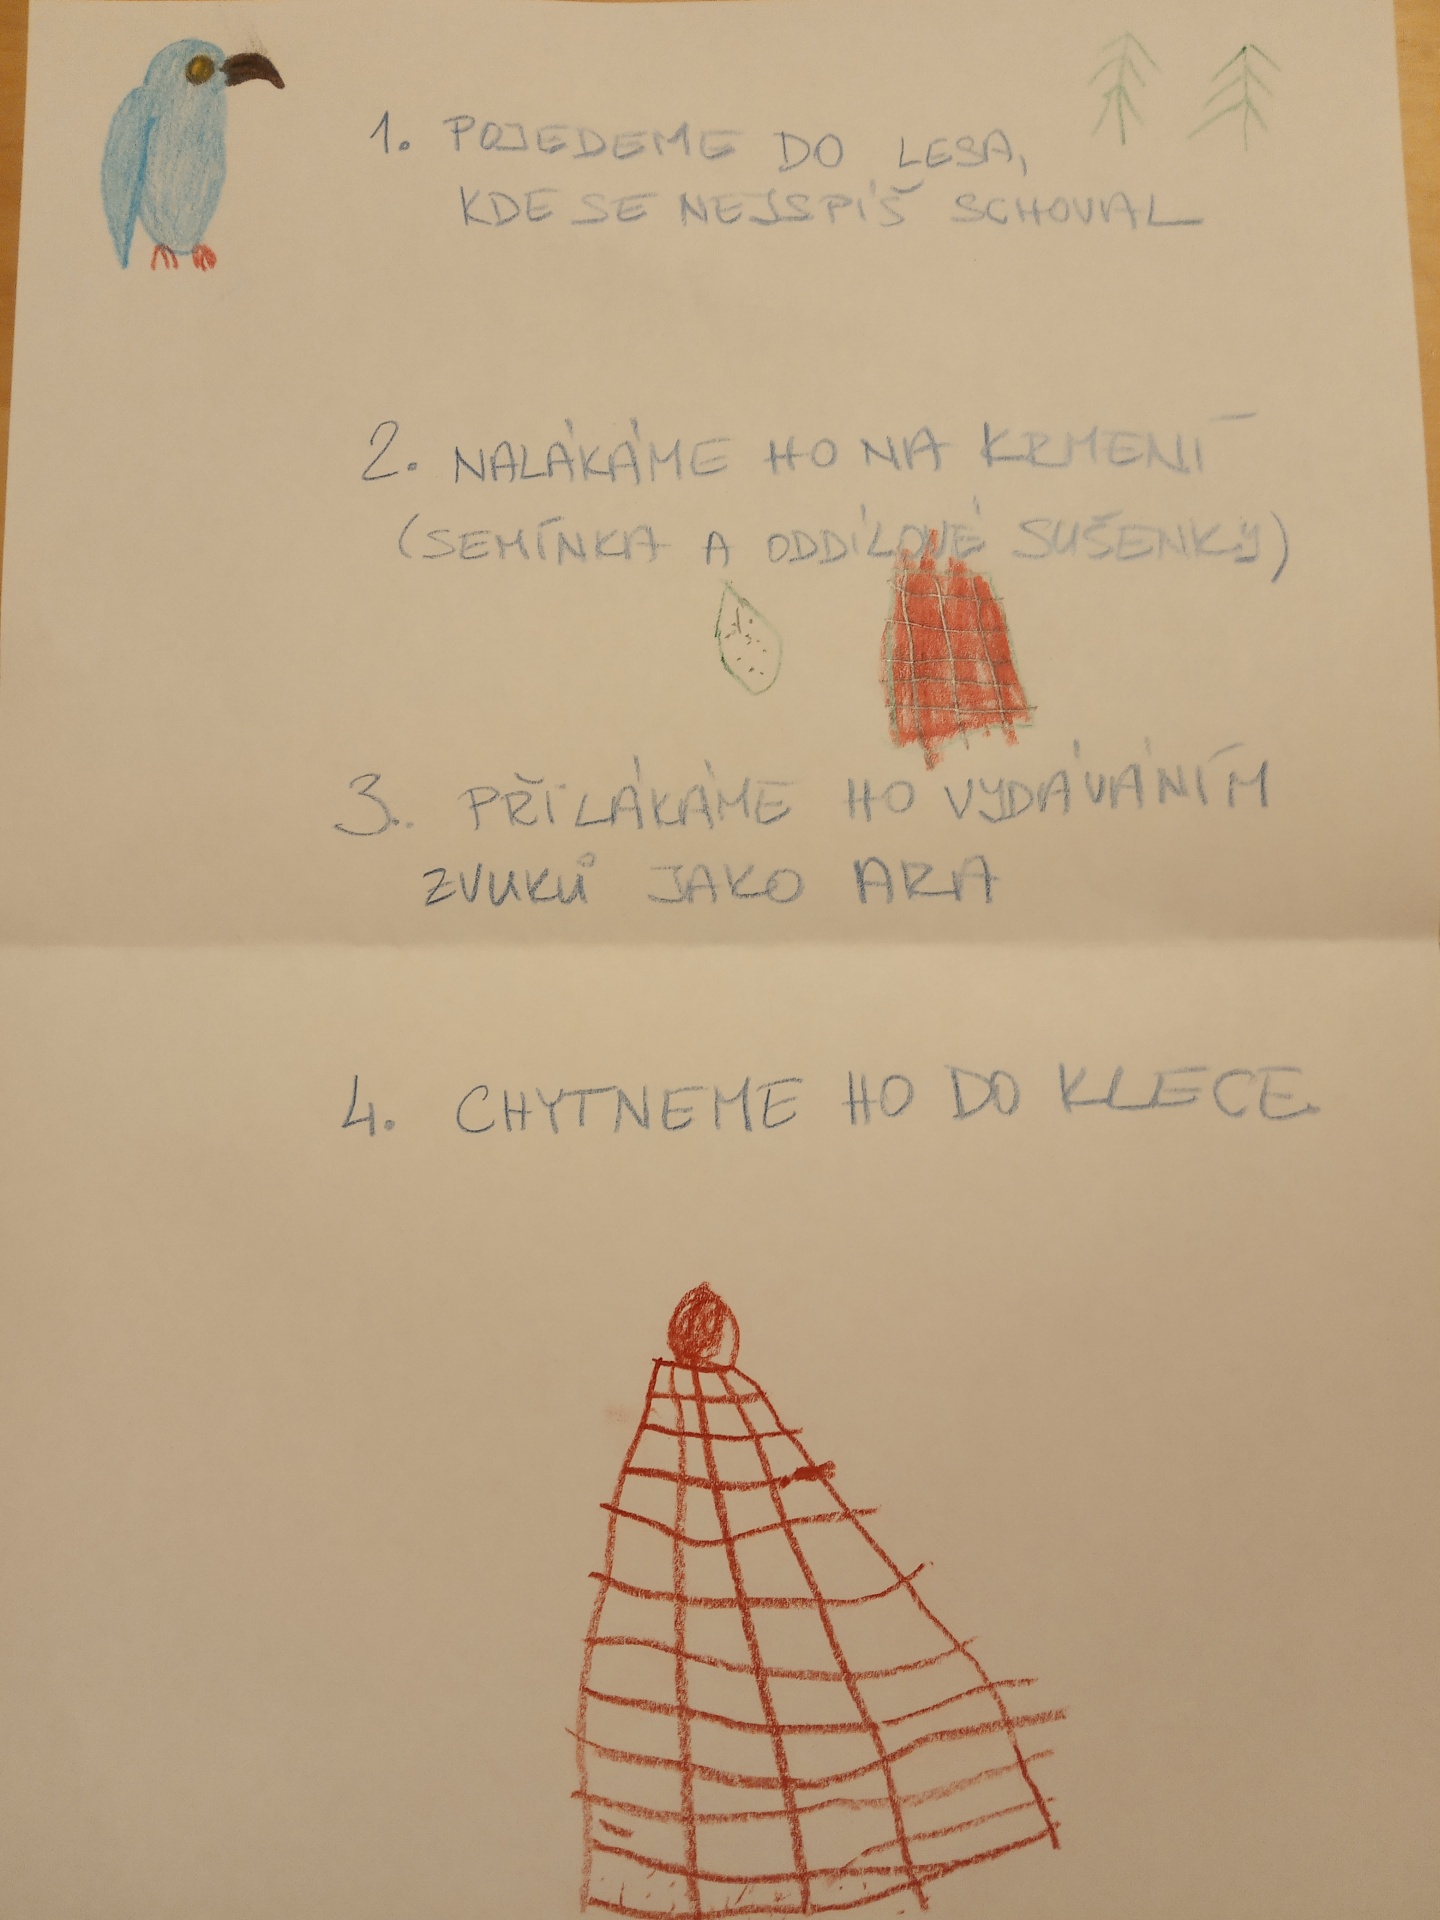 1. POJEDEME DO LESA,
KDE SE NEJSPÍŠ SCHOVAL
2. NALÁKÁME HO NA KRMENÍ
(SEMÍNKA A ODDÍLOVÉ SUŠENKY)
3. PŘILÁKÁME HO VYDÁVÁNÍM
ZVUKŮ JAKO ARA
4. CHYTNEME HO DO KLECE.